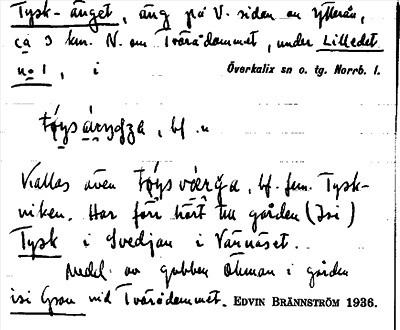 Tysk-änget, äng på V. sidan av Ytterån,
ca 3 km. N. om Tvärådammet, under Lilledet
no 1, i Överkalix sn o. tg. Norrb. l.
bf. n
Kallas även bf. fem. Tysk-
viken. Har förr hört till gården (Isi)
Tysk i Svedjan i Vännäset.
Medd. av gubben Öhman i gården
vid Tvärådammet. EDVIN BRÄNNSTRÖM 1936.